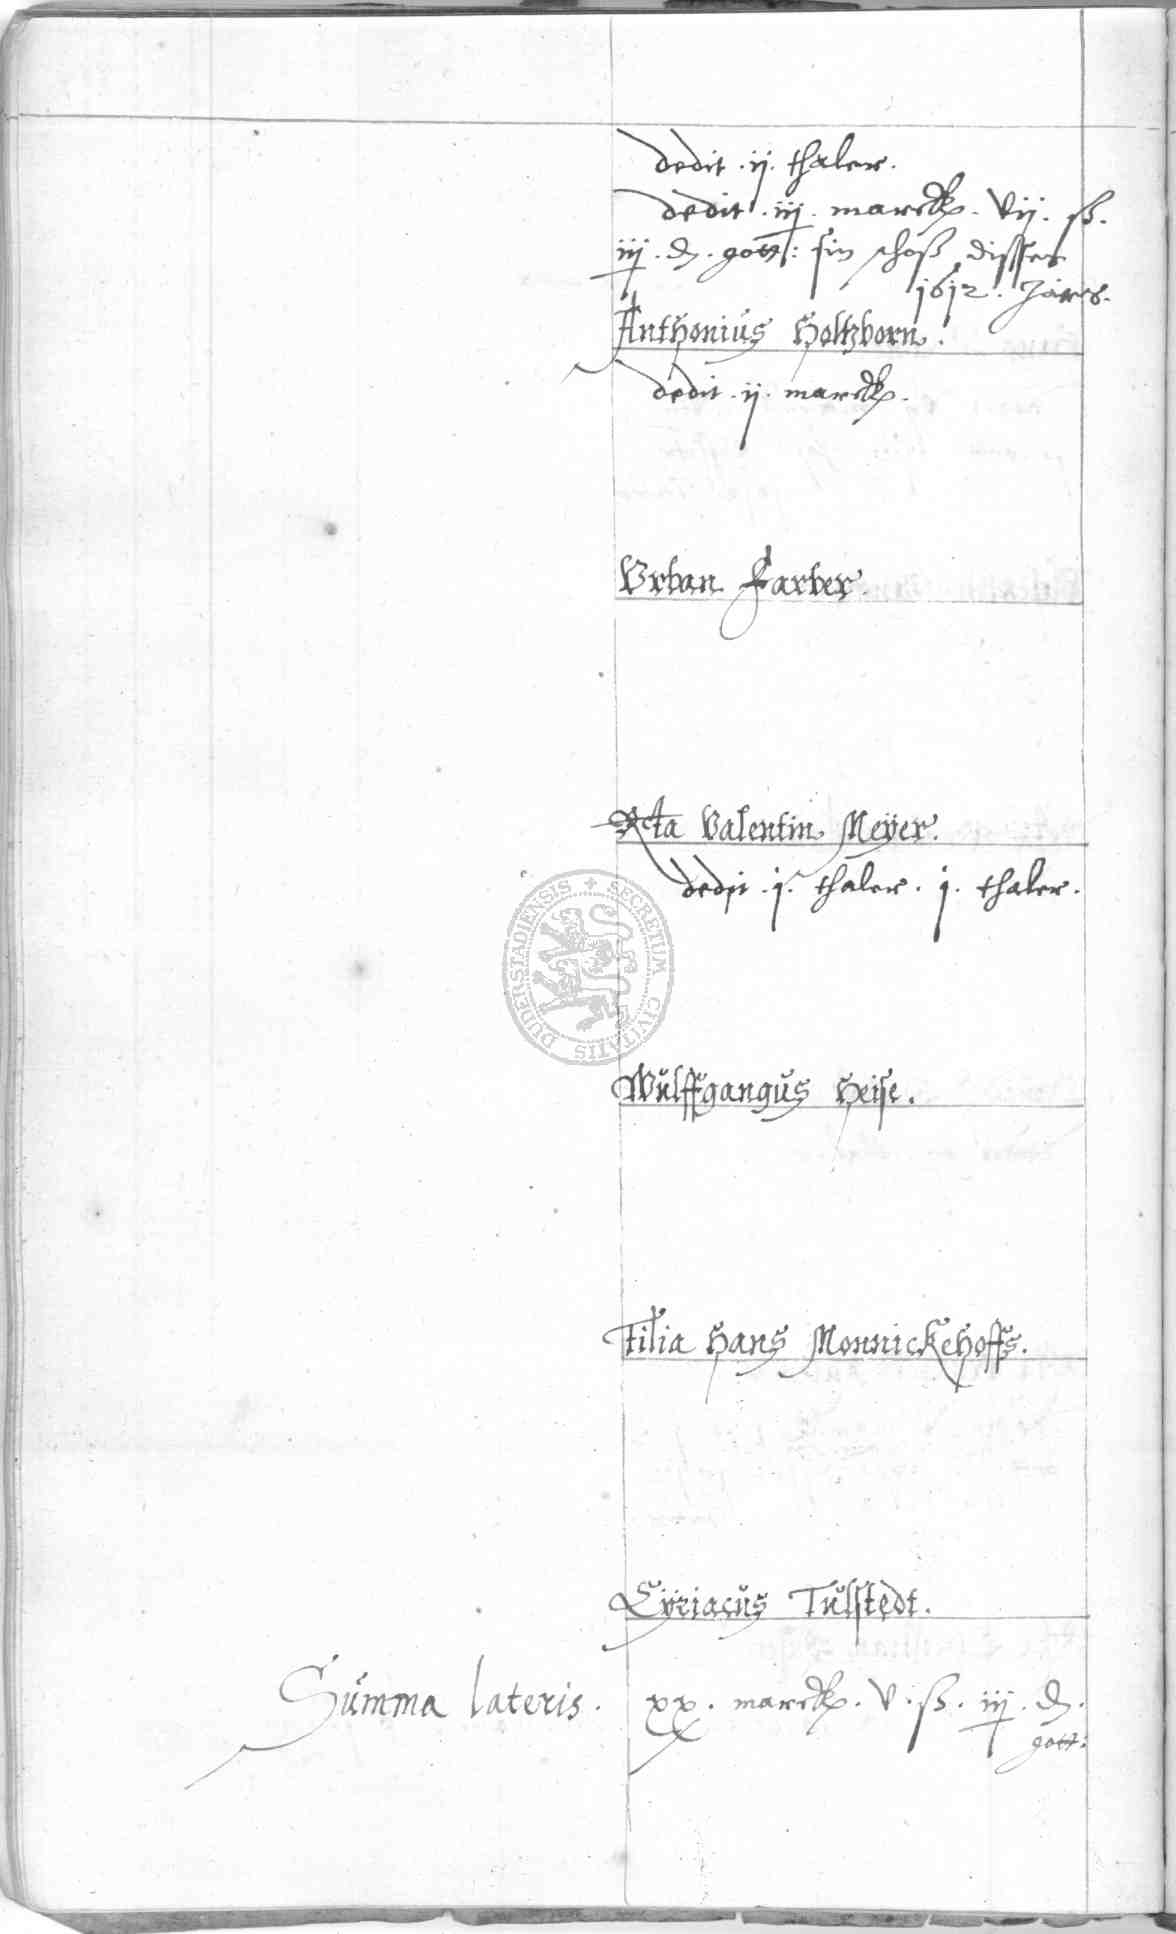 dedit . ij . thaler .
dedit . iij . marck . vij . ß .
iij . d . gott : sin schoß disses
1612 . Jares .
Anthonius Holtzborn .
dedit . ij . marck .
Urban Farber .
Rta Valentin Meÿer .
dedit . j . thaler . j . thaler .
SECRETUM CIVITATIS DUDERSTADIENSIS
Wulffgangus Heise .
Filia Hans Monnickehoffs .
Cÿriacus Tulstedt .
Summa lateris . xx . marck . v . ß . iij . d .
gott :